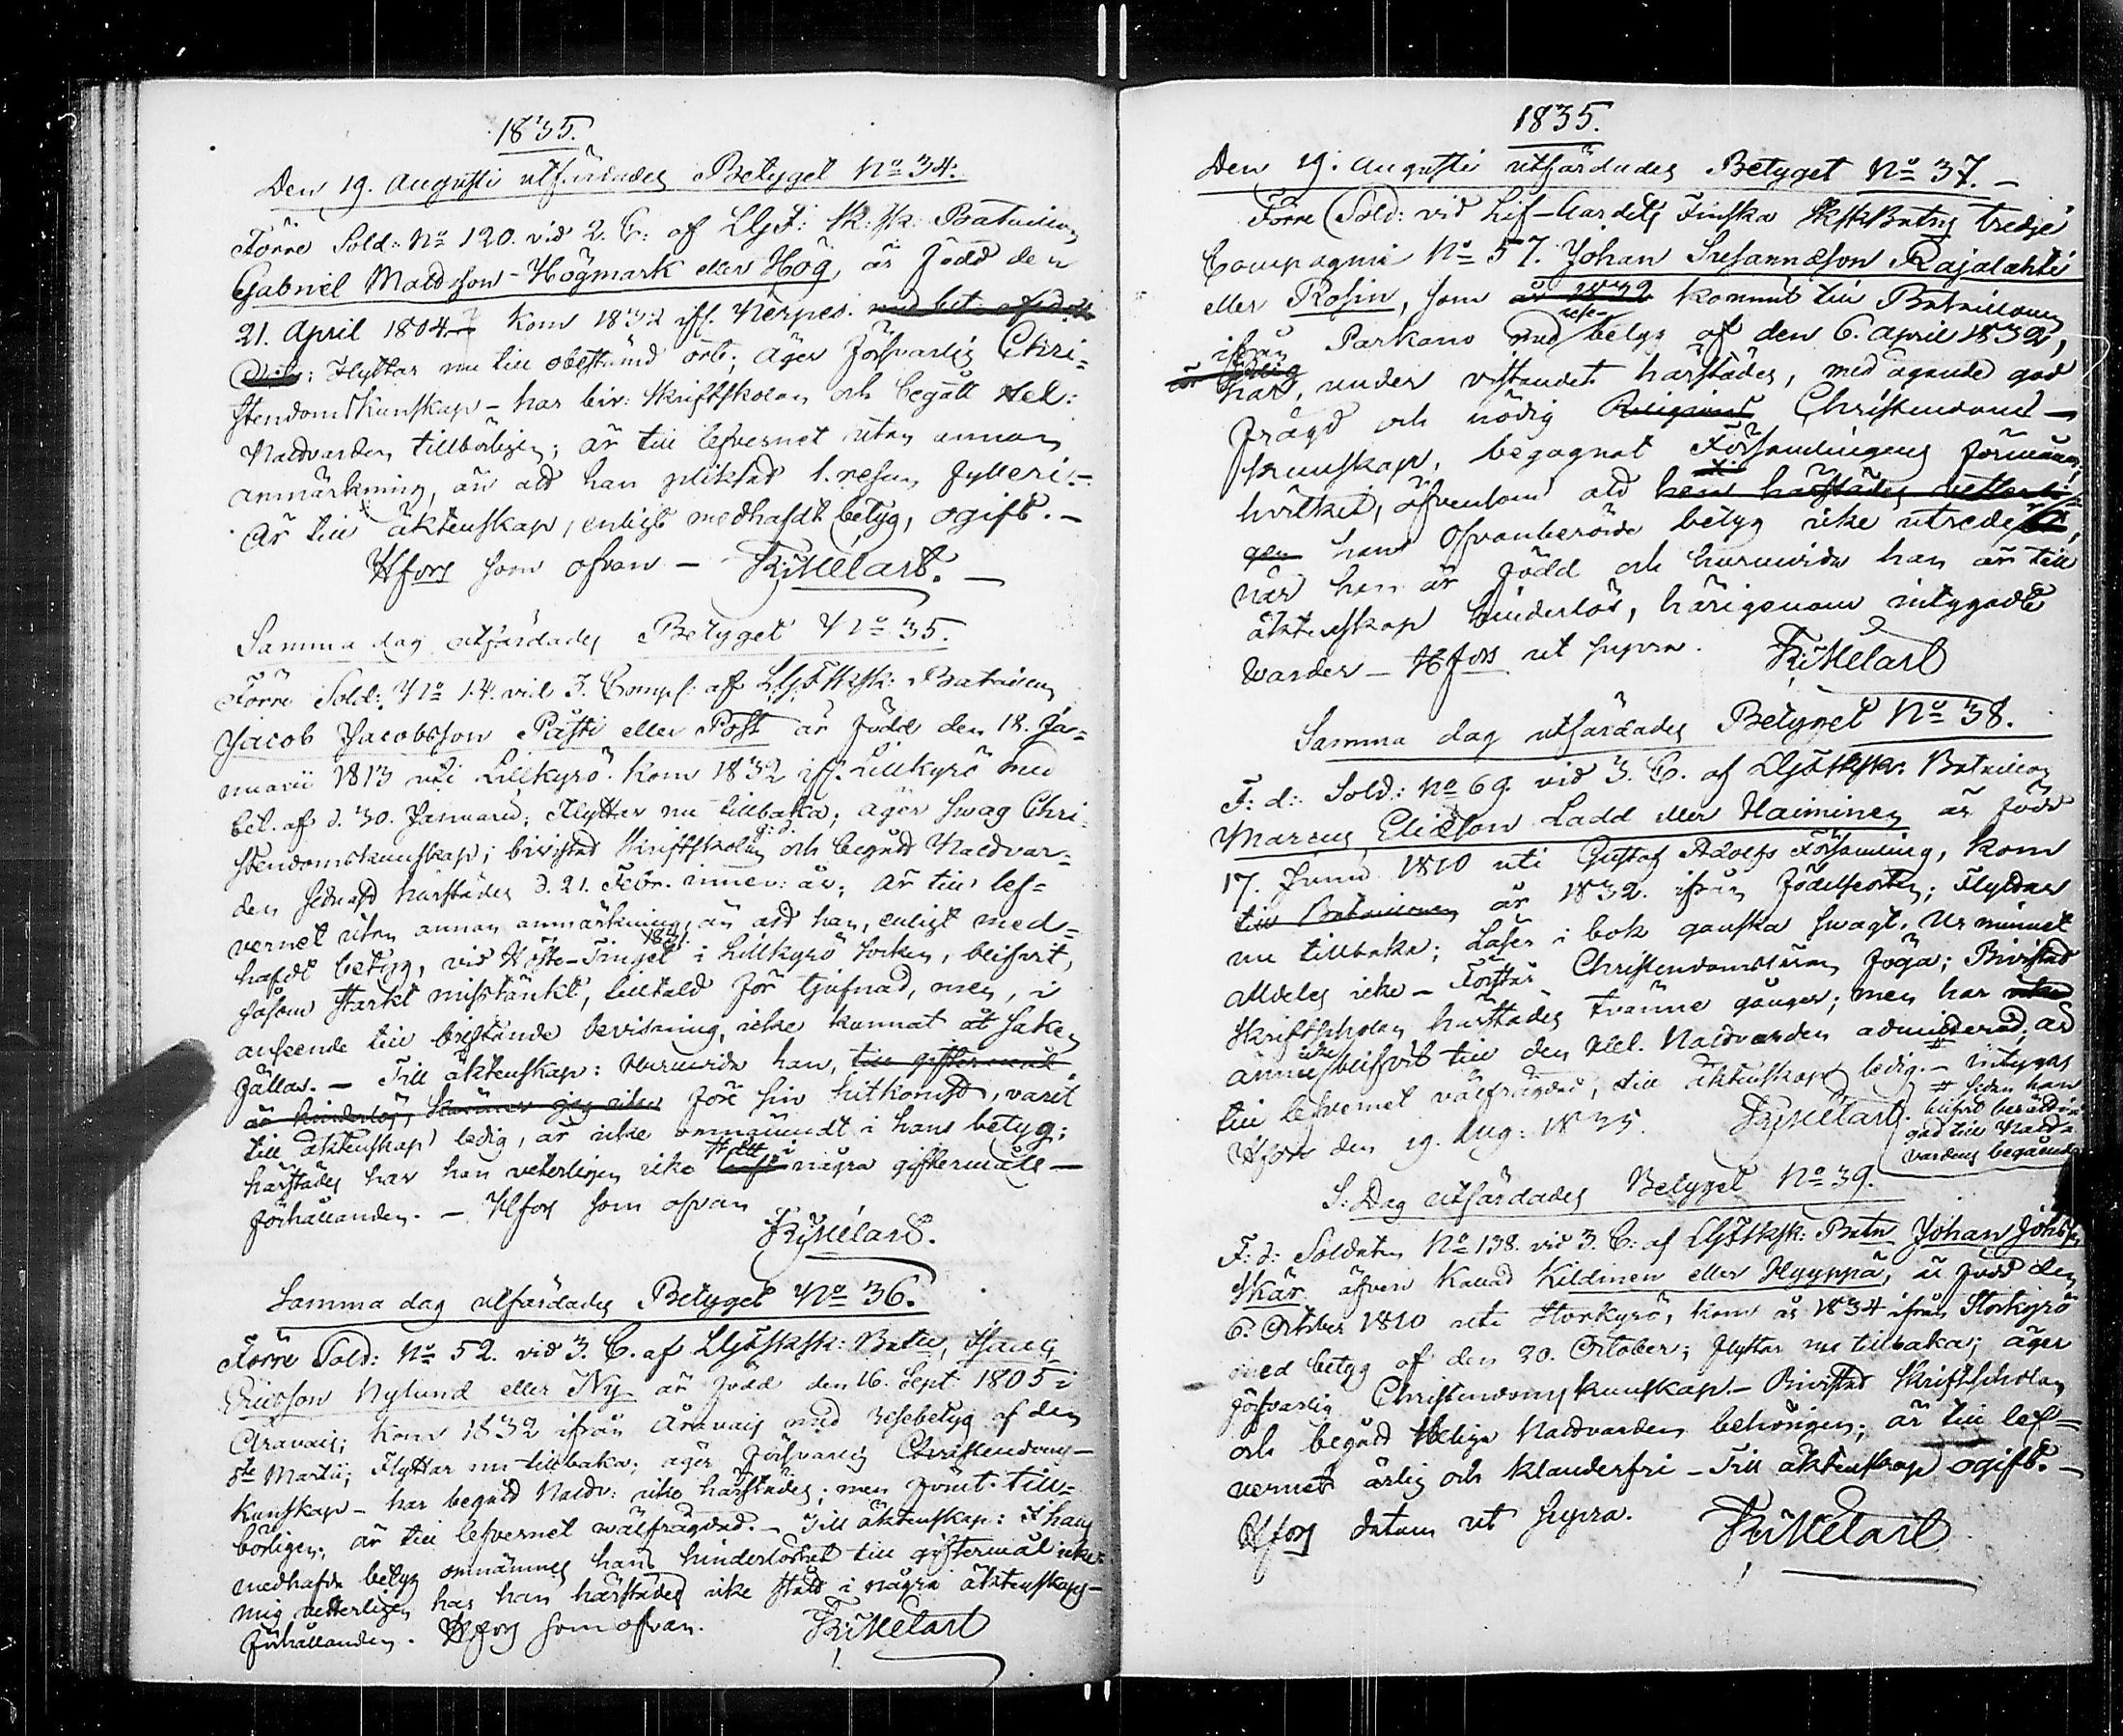 1835.
Den 19. Augusti utfärdades Betyget No 34.
Förre Sold: No 120. vid 2. C: af LGF: Sk: sk: Bataillon
Gabriel Mattsson Högmark eller Hög, är född den
21. April 1804 kom 1832 ifr. Nerpes. med bet: af d.
Flyttar nu till obestämd ort; äger försvarlig Chri-
stendomskunskap – har biv: Skriftskolan och begått Hel:
Nattvarden tillbörligen; är till lefvernet utan annan
anmärkning, än att han pliktat 1. resan fylleri. –
Är till äktenskap, enligt medhafdt betyg, ogift. –
Hfors som ofvan – FrMelart. –
Samma dag utfärdades Betyget No 35.
Förre Sold: No 14. vid 3. Comp: af LGFSksk: Bataillon
Jacob Jacobsson Påsti eller Post är född den 18. Ja-
nuarii 1813 uti Lillkyrö. Kom 1832 ifr. Lillkyrö med
bet. af d. 30. Januarii; Flyttar nu tillbaka; äger swag Chri-
stendomskunskap; bivistat Skriftskolan och begått Nattvar-
den sednast härstädes d. 21. Febr. innev: år; är till lef-
vernet utan annan anmärkning, än att han, enligt med-
hafdt betyg, vid Höste-Tinget 1831 i Lillkyrö socken, blifvit,
såsom starkt misstänkt, tilltald för tjufnad, men, i
anseende till bristande bevisning, icke kunnat åt saken
fällas. – Till äktenskap: Huruvida han, till giftermål
är hinderlös, känner jag icke före sin hitkomst, varit
till äktenskap ledig, är icke omnämndt i hans betyg;
härstädes har han veterligen icke stått i några giftermåls –
förhållanden. – Hfors som ofvan
FrMelart.
Samma dag utfärdades Betyget No 36.
Förre Sold: No 52. vid 3. C. af LGFSksk: Batn, Hans
Ericsson Nylund eller Ny är född den 16. Sept. 1805 i
Oravais; kom 1832 ifrån Oravais med resebetyg af den
8de Martii; Flyttar nu tillbaka; äger försvarlig Christendoms –
kunskap – har begått Nattv: icke härstädes; men förut till-
börligen; är till lefvernet wälfrägdad. – Till äktenskap: I hans
medhafda betyg omnämnes hans hinderlöshet till giftermål icke:
mig vetterligen har han härstädes icke stått i några äktenskaps –
förhållanden. Hfors som ofvan. FrMelart
1835.
Den 19. Augusti utfärdades Betyget No 37. –
Förre Sold: vid Lif-Gardets Finska SkskBatns tredje
Compagnie No 57. Johan Susannæson Rajalahti
eller Rosin, som år 1832 kommit till Bataillonen
ifrån Parkano med rese- betyg af den 6. April 1832,
har, under vistandet härstädes, med ägande god
frägd och nödig Religions Christendoms –
kunskap, begagnat Församlingens förmåner,
hvilket, äfvensom att hans härstädes vetterli-
gen hans ofvanberörde betyg icke utreder,
när han är född och huruvida han är till
äktenskap hinderlös, härigenom intygadt
warder – Hfors ut supra. FrMelart
Samma dag utfärdades Betyget No 38.
F: d: Sold: No 69. vid 3. C. af LGFSksk: Bataillon
Marcus Eliæson Ladd eller Haiminen är född
17. Junii 1810 uti Gustaf Adolfs Församling, kom
till Bataillonen år 1832. ifrån födelseorten; Flyttar
nu tillbaka; Läser i bok ganska swagt, Ur minnet
alldeles icke – Förstår Christendomsläran föga; Bivistat
Skriftskolan härstädes tvänne gånger; men har icke
ännu icke blifvit till den Hel. Nattvarden admitterad; är
till lefvernet välfrägdad, till äktenskap ledig. – intygas
Hfors den 19. Aug: 1835. FrMelart.
# sedan han
blifvit berätti-
gad till Natt-
vardens begående
S: Dag utfärdades Betyget No 39.
F: d: Soldaten No 138. vid 3. C: af LGFSksk: Batn Johan Johsson
Skär äfven kallad Kildinen eller Hyyppä, är född den
6. October 1810 uti Storkyrö, kom år 1834 ifrån Storkyrö
med betyg af den 20. October; flyttar nu tillbaka; äger
försvarlig Christendomskunskap. – Bivistat Skriftskolan
och begått Heliga Nattvarden behörigen; är till lef-
vernet ärlig och klanderfri – Till äktenskap ogift. –
Hfors datum ut supra. FrMelart